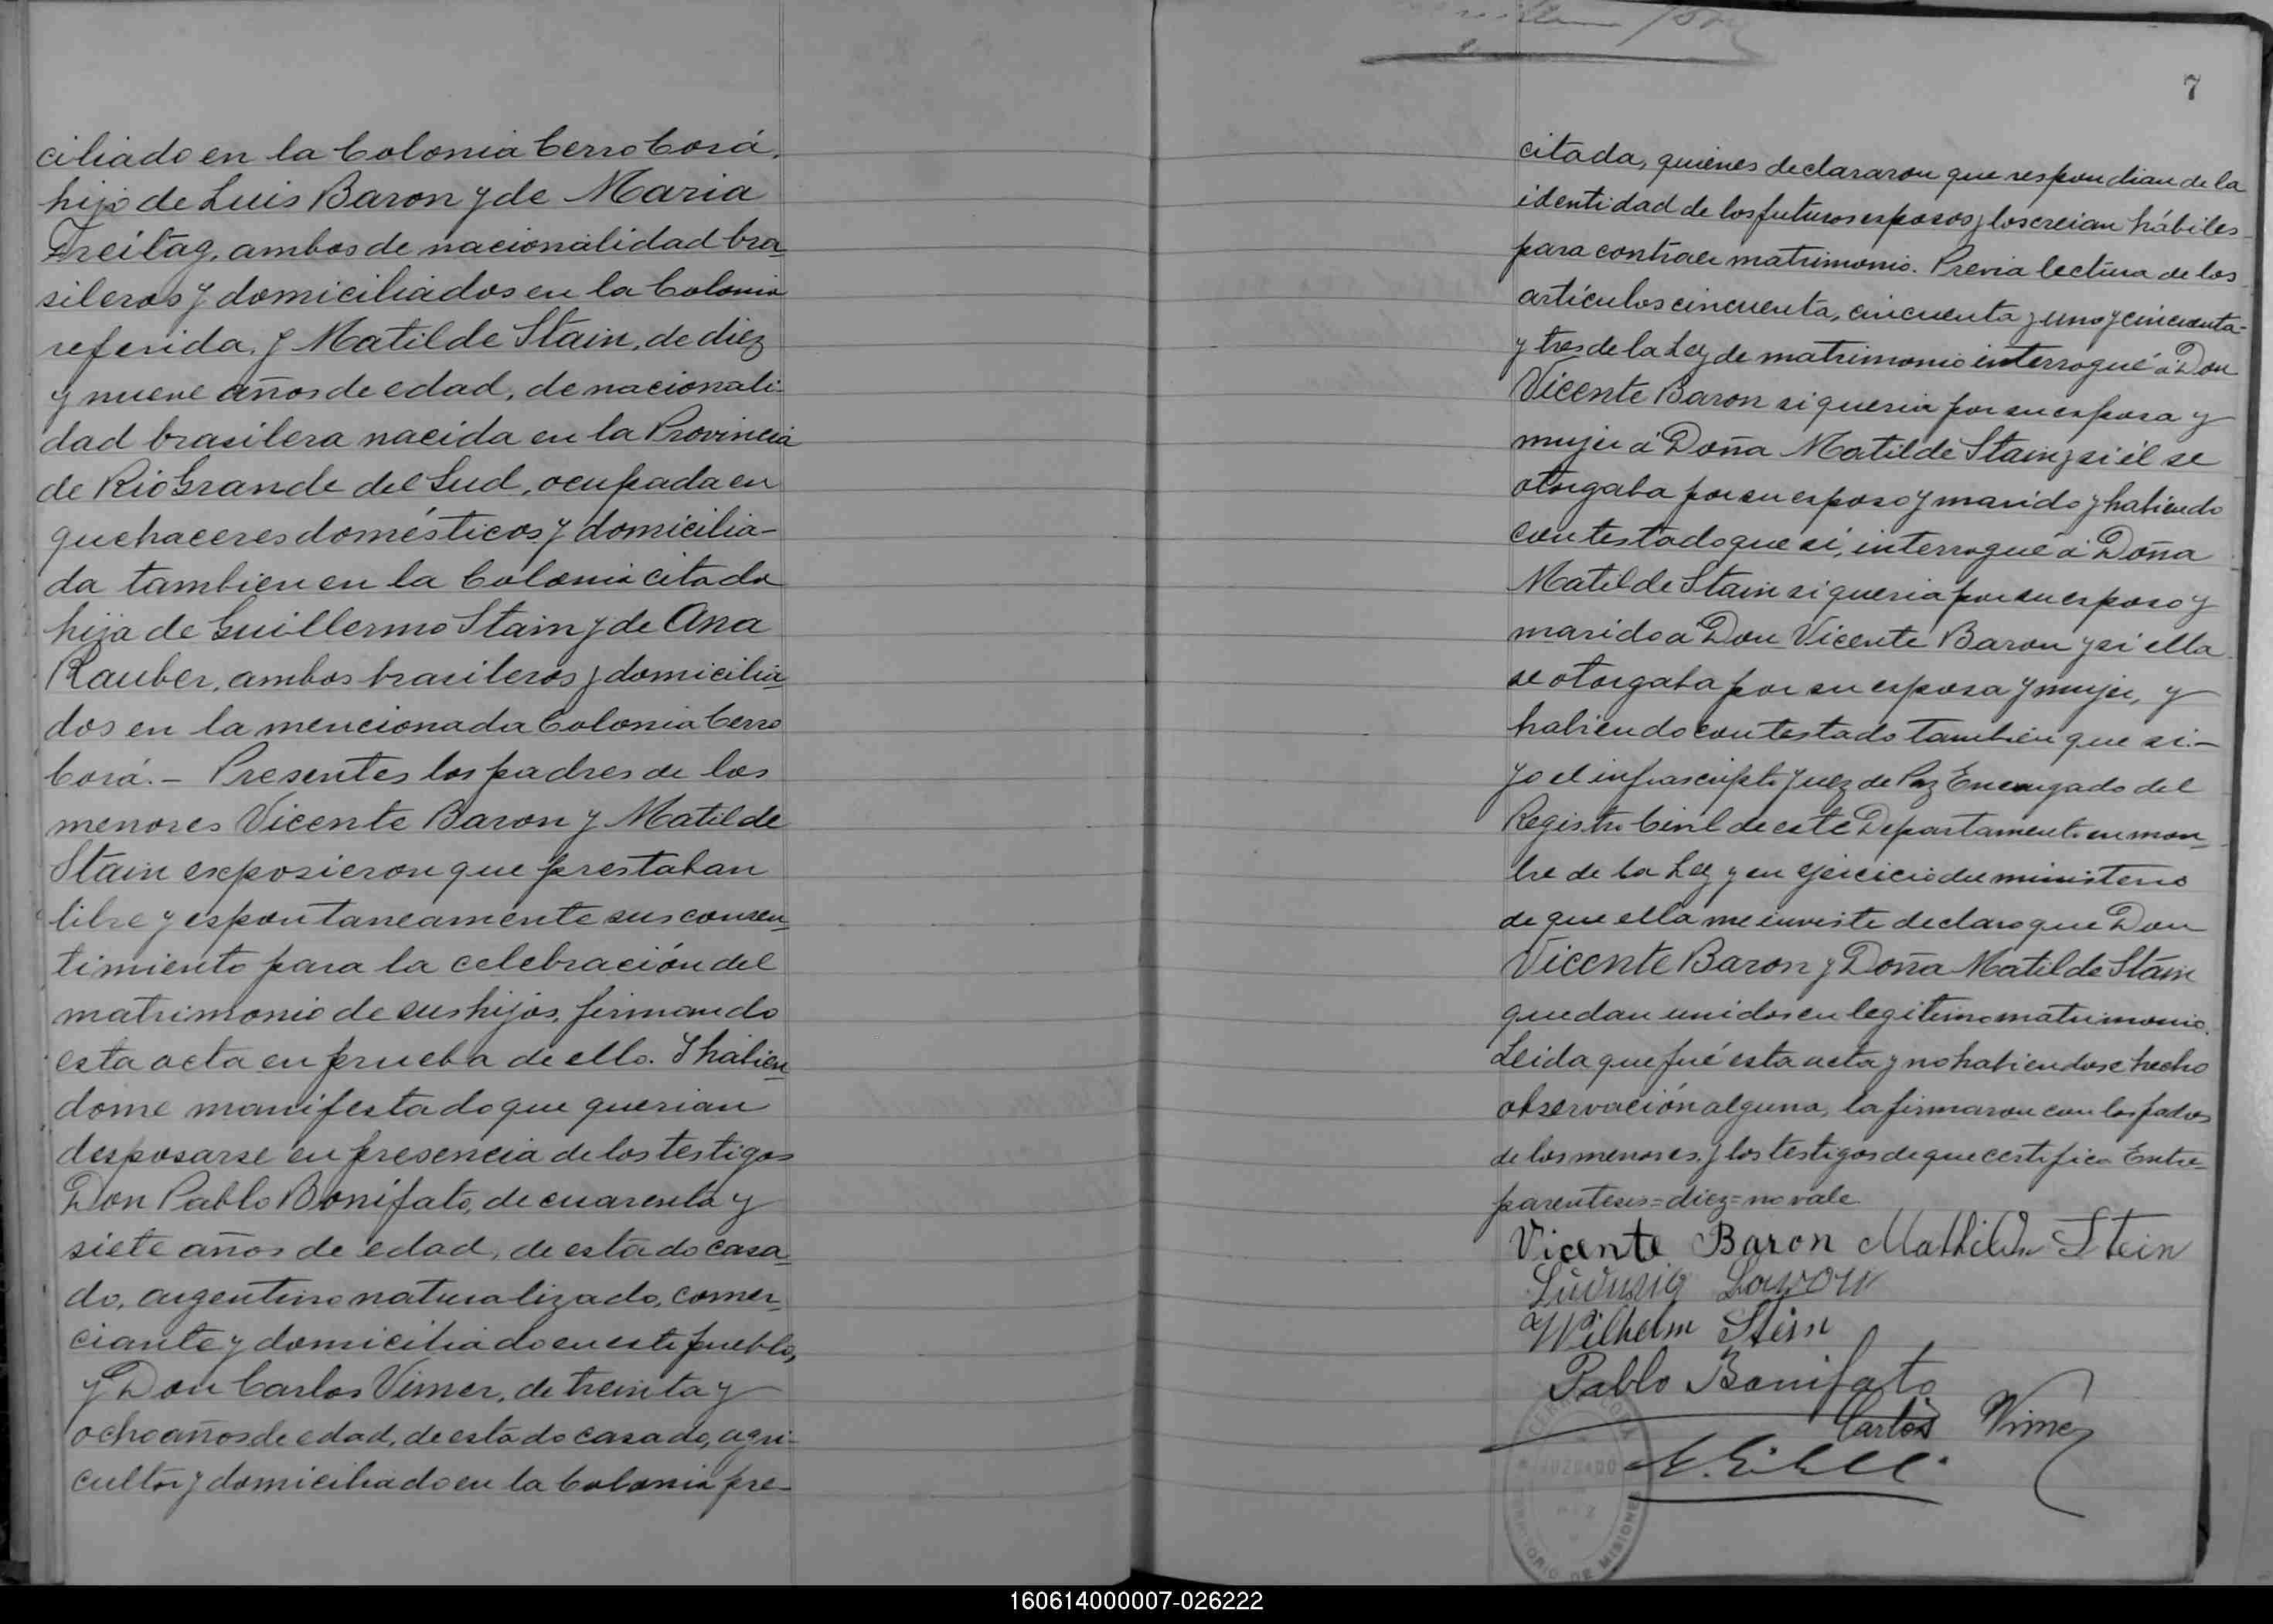 ciliado en la Colonia Cerro Corá,
hijo de Luis Baron y de Maria
Freitag, ambos de nacionalidad bra-
sileros y domiciliados en la Colonia
referida, y Matilde Stain, de diez
y nueve años de edad, de nacionali-
dad brasilera nacida en la Provincia
de Rio Grande del Sud, ocupada en
quehaceres domésticos y domicilia-
da tambien en la Colonia citada
hija de Guillermo Stain y de Ana
Rauber, ambos brasileros y domicilia-
dos en la mencionada Colonia Cerro
Corá.- Presentes los padres de los
menores Vicente Baron y Matilde
Stain exposieron que prestaban
libre y espontaneamente sus consen-
timiento para la celebración del
matrimonio de sus hijos, firmando
esta acta en prueba de ello. Y habien-
dome manifestado que querian
desposarse en presencia de los testigos
Don Pablo Bonifato, de cuarenta y
siete años de edad, de estado casa-
do, argentino naturalizado, comer-
ciante y domiciliado en este pueblo,
y Don Carlos Vimer, de treinta y
ocho años de edad, de estado casado, agri-
cultor y domiciliado en la Colonia pre-
7
citada, quienes declararon que respondian de la
identidad de los futuros esposos y los creian hábiles
para contraer matrimonio. Previa lectura de los
artículos cincuenta, cincuenta y uno y cincuenta-
y tres de la Ley de matrimonio interrogué á Don
Vicente Baron si queria por su esposa y
mujer á Doña Matilde Stain y si él se
otorgaba por su esposo y marido y habiendo
contestado que sí, interrogué á Doña
Matilde Stain si queria por su esposo y
marido á Don Vicente Baron y si ella
se otorgaba por su esposa y mujer, y
habiendo contestado tambien que si.-
Yo el infrascripto Juez de Paz Encargado del
Registro Civil de este Departamento en nom-
bre de la Ley y en ejercicio del ministerio
de que ella me inviste declaro que Don
Vicente Baron y Doña Matilde Stain
quedan unidos en legitimo matrimonio.
Leida que fué esta acta y no habiendose hecho
observación alguna, la firmaron con los padres
de los menores, y los testigos de que certifico Entre-
parentesis=diez=no vale
Vicente Baron Mathilde Stein
Ludwig Baron
Wilhelm Stein
Pablo Bonifato
Carlos Vimer
CERRO CORA
JUZGADO
TERRITORIO DE MISIONES
160614000007-026222